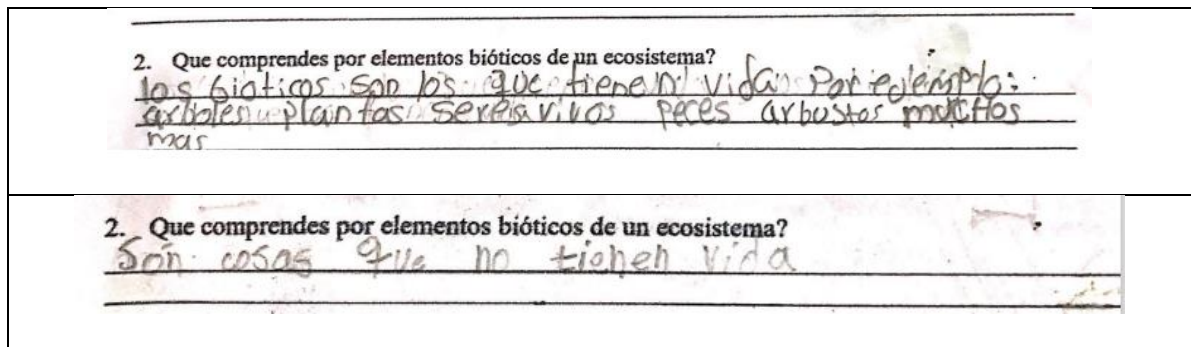 2. Que comprendes por elementos bióticos de un ecosistema?
los bioticos son los que tienen vida Por ejemplo:
arboles plantas seres vivos peces arbustos muchos
mas
2. Que comprendes por elementos bióticos de un ecosistema?
Son cosas que no tienen vida